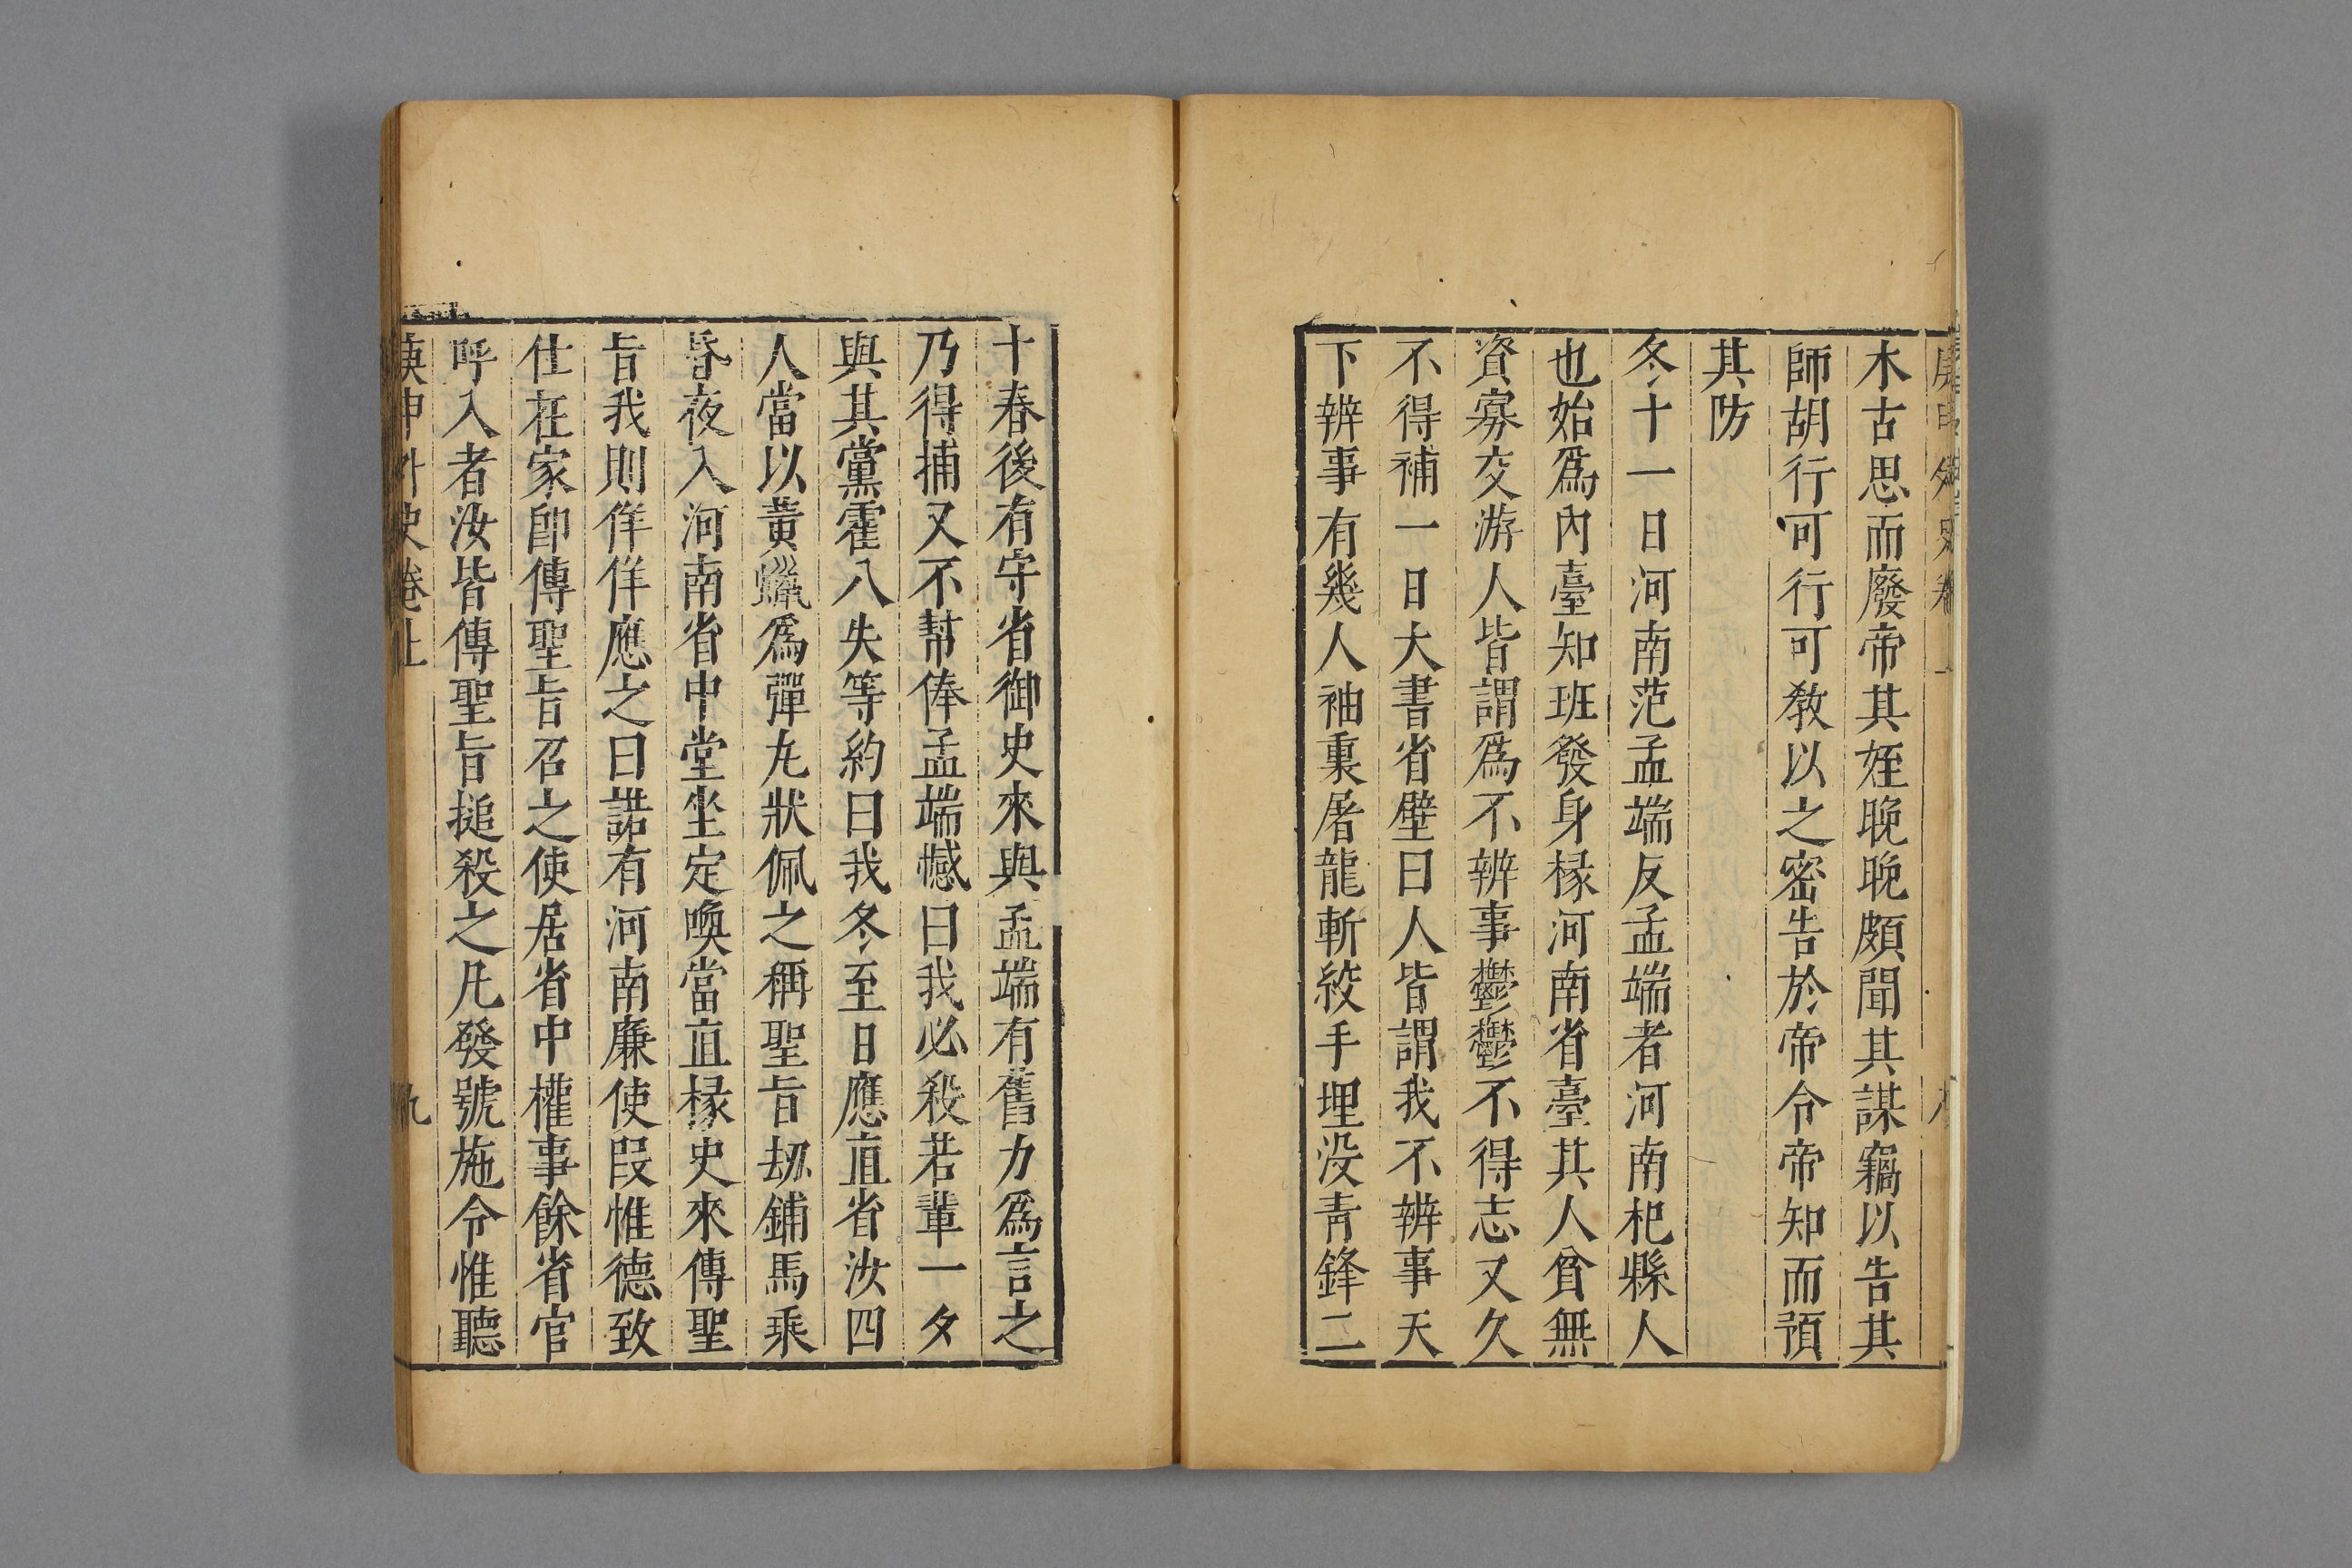 木古思而廢帝其姪晚晚頗聞其謀竊以告其
師胡行可行可敎以之密告於帝令帝知而預
其防
冬十一日河南范孟端反孟端者河南杞縣人
也始爲內臺知班發身椽河南省臺其人貧無
資寡交游人皆謂爲不辨事鬱鬱不得志又久
不得補一日大書省壁曰人皆謂我不辨事天
下辨事有幾人袖裏屠龍斬絞手埋没青鋒二
十春後有守省御史來與孟端有舊力爲言之
乃得捕又不幇俸孟端憾曰我必殺若輩一夕
與其黨霍八失等約曰我冬至日應直省汝四
人當以黃蠟爲彈丸狀佩之稱聖旨刼鋪馬乘
昏夜入河南省中堂坐定喚當直椽史來傳聖
旨我則佯佯應之曰諾有河南廉使段惟德致
仕在家卽傳聖旨召之使居省中權事餘省官
呼入者汝皆傳聖旨搥殺之凡發號施令惟聽
庚申外史卷上
九